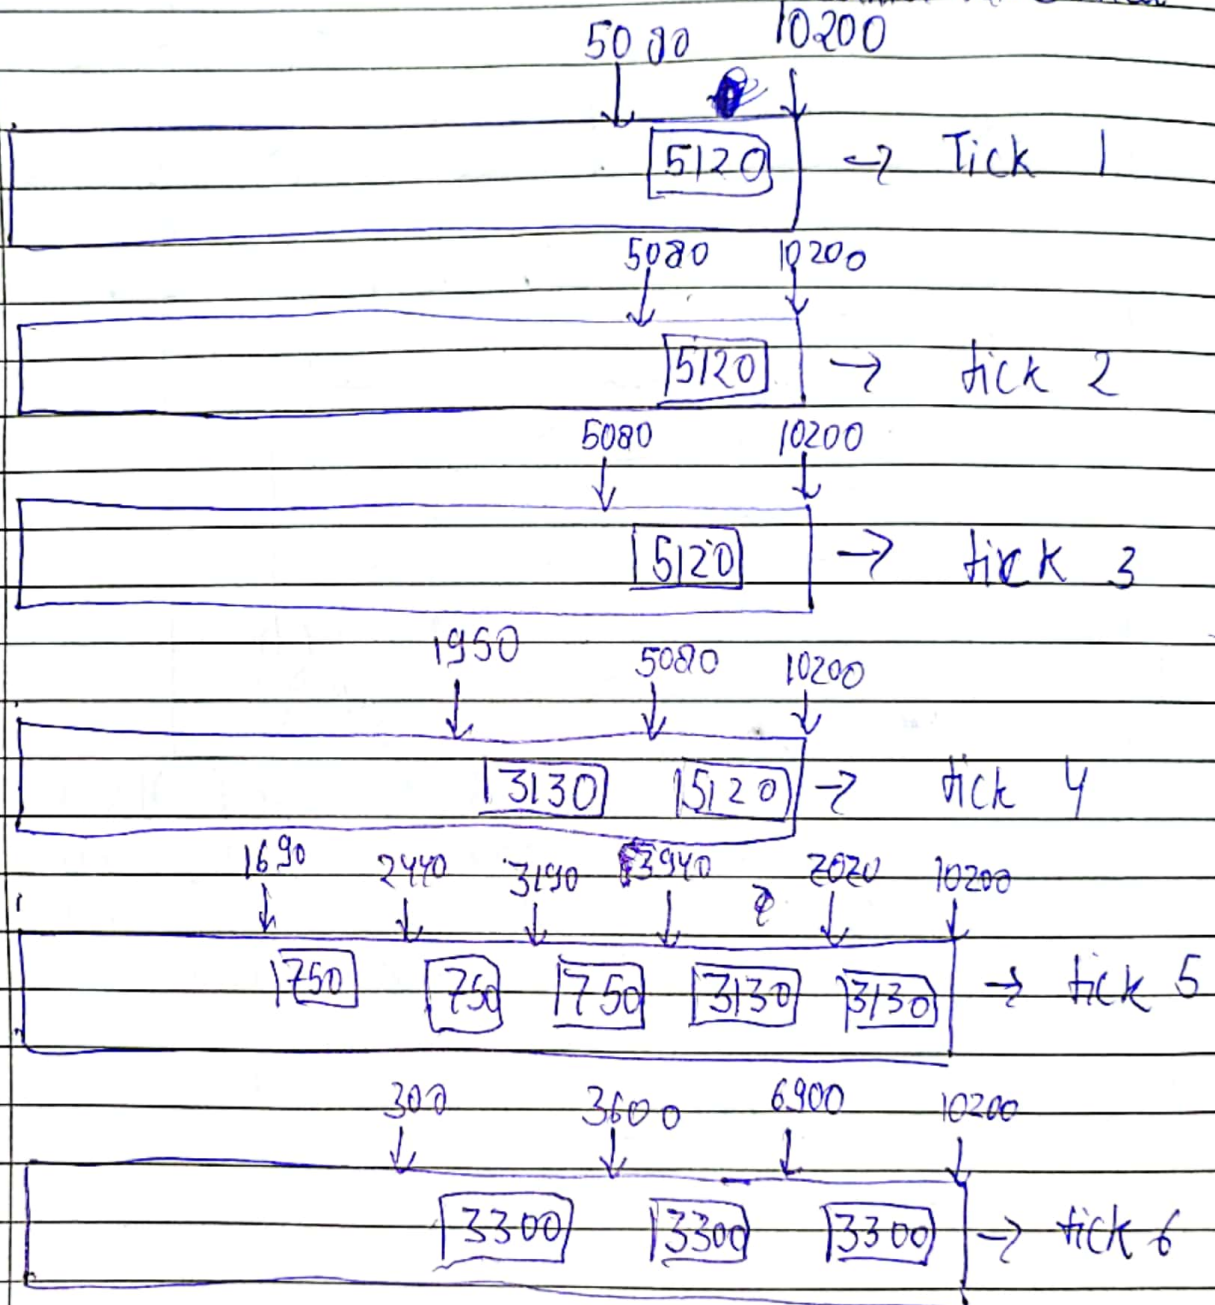 5080 10200
5120 → Tick 1
5080 10200
5120 → tick 2
5080 10200
5120 → tick 3
1950 5080 10200
3130 5120 → tick 4
1690 2440 3190 3940 7070 10200
750 750 750 3130 3130 → tick 5
300 3600 6900 10200
3300 3300 3300 → tick 6